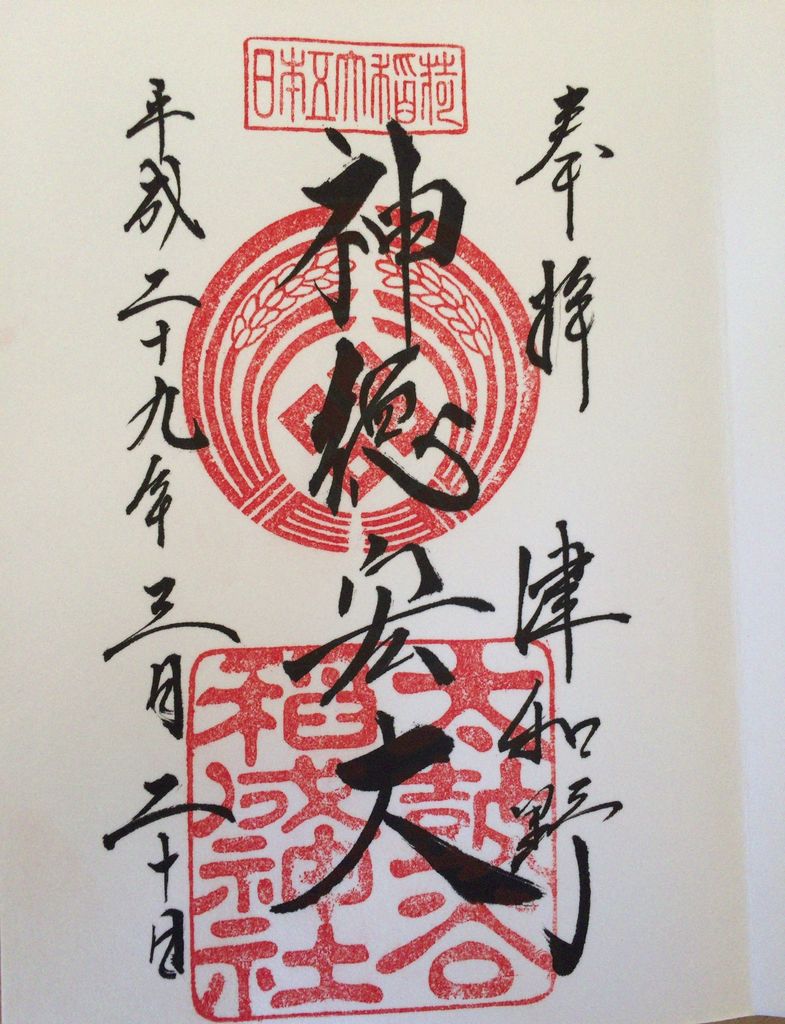 日本五大稲荷
奉拝
津和野
神徳宏大
太皷谷
稲成神社
平成二十九年三月二十日